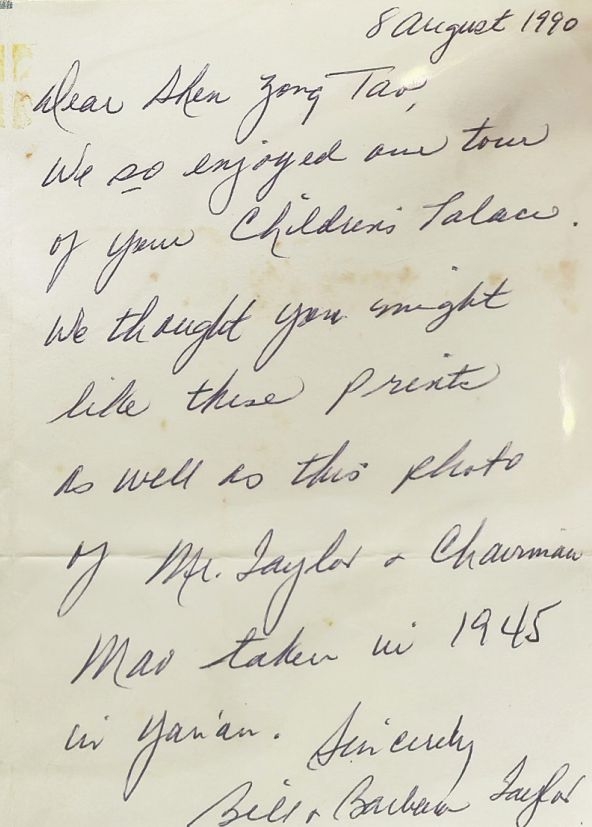 8 August 1990
Dear Shen Zong Tao,
We so enjoyed our tour
of your Children's Palace.
We thought you might
like these prints
as well as this photo
of Mr. Taylor & Chairman
Mao taken in 1945
in Yan'an. Sincerely
Bill & Barbara Taylor